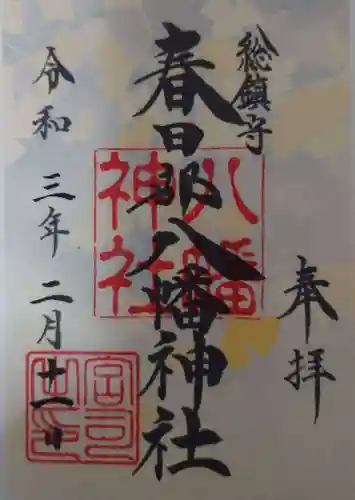 奉拝
総鎮守
春日部八幡神社
八幡
神社
令和三年二月十一日
宮司
之印